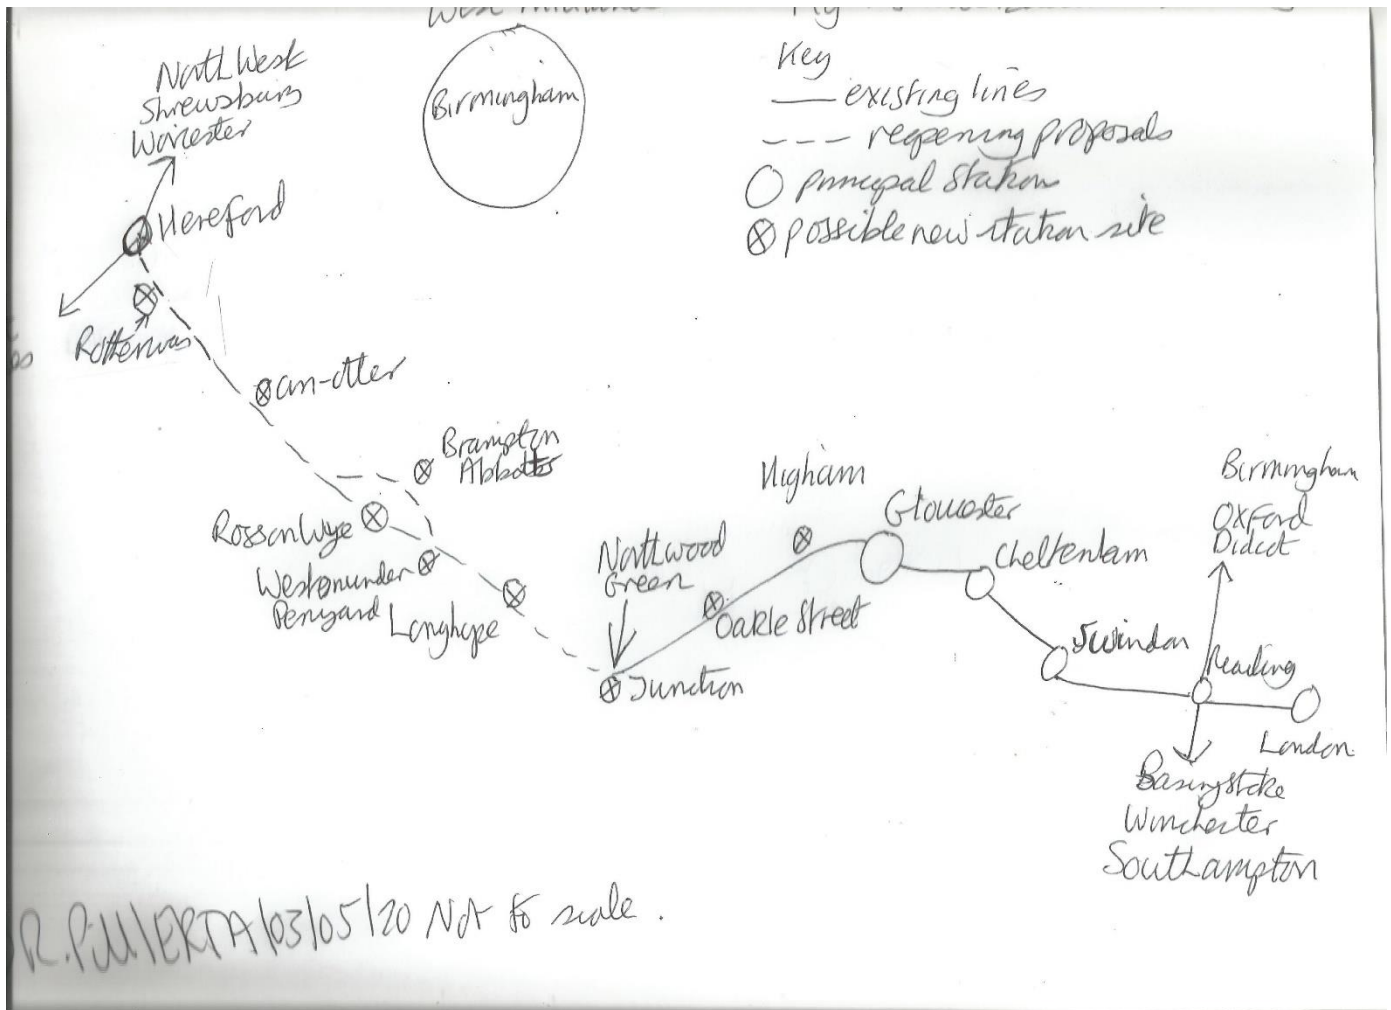 West Midlands
Key
existing lines
reopening proposals
principal station
possible new station site
North West
Shrewsbury
Worcester
Birmingham
Hereford
Rotherwas
on-otter
Brampton
Abbotts
Ross on Wye
Weston under
Penyard
Longhope
Northwood
Green
Junction
Oakle Street
Higham
Gloucester
Cheltenham
Swindon
Reading
London
Birmingham
Oxford
Didcot
Basingstoke
Winchester
Southampton
R. Pill/ERTA/03/05/20 Not to scale.